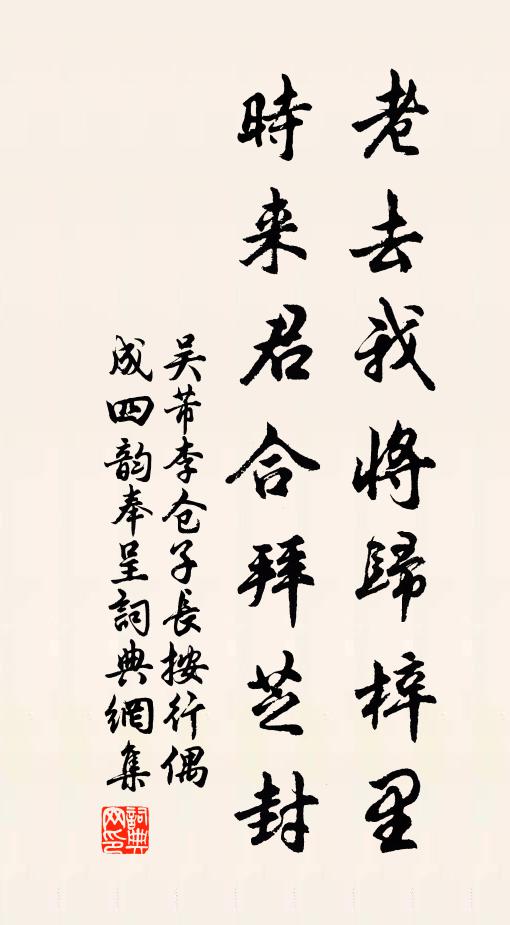 老去我將歸梓里
時来君合拜芝封
吴芾李仓子長按行偶
成四韵奉呈詞典網集
詞典网印